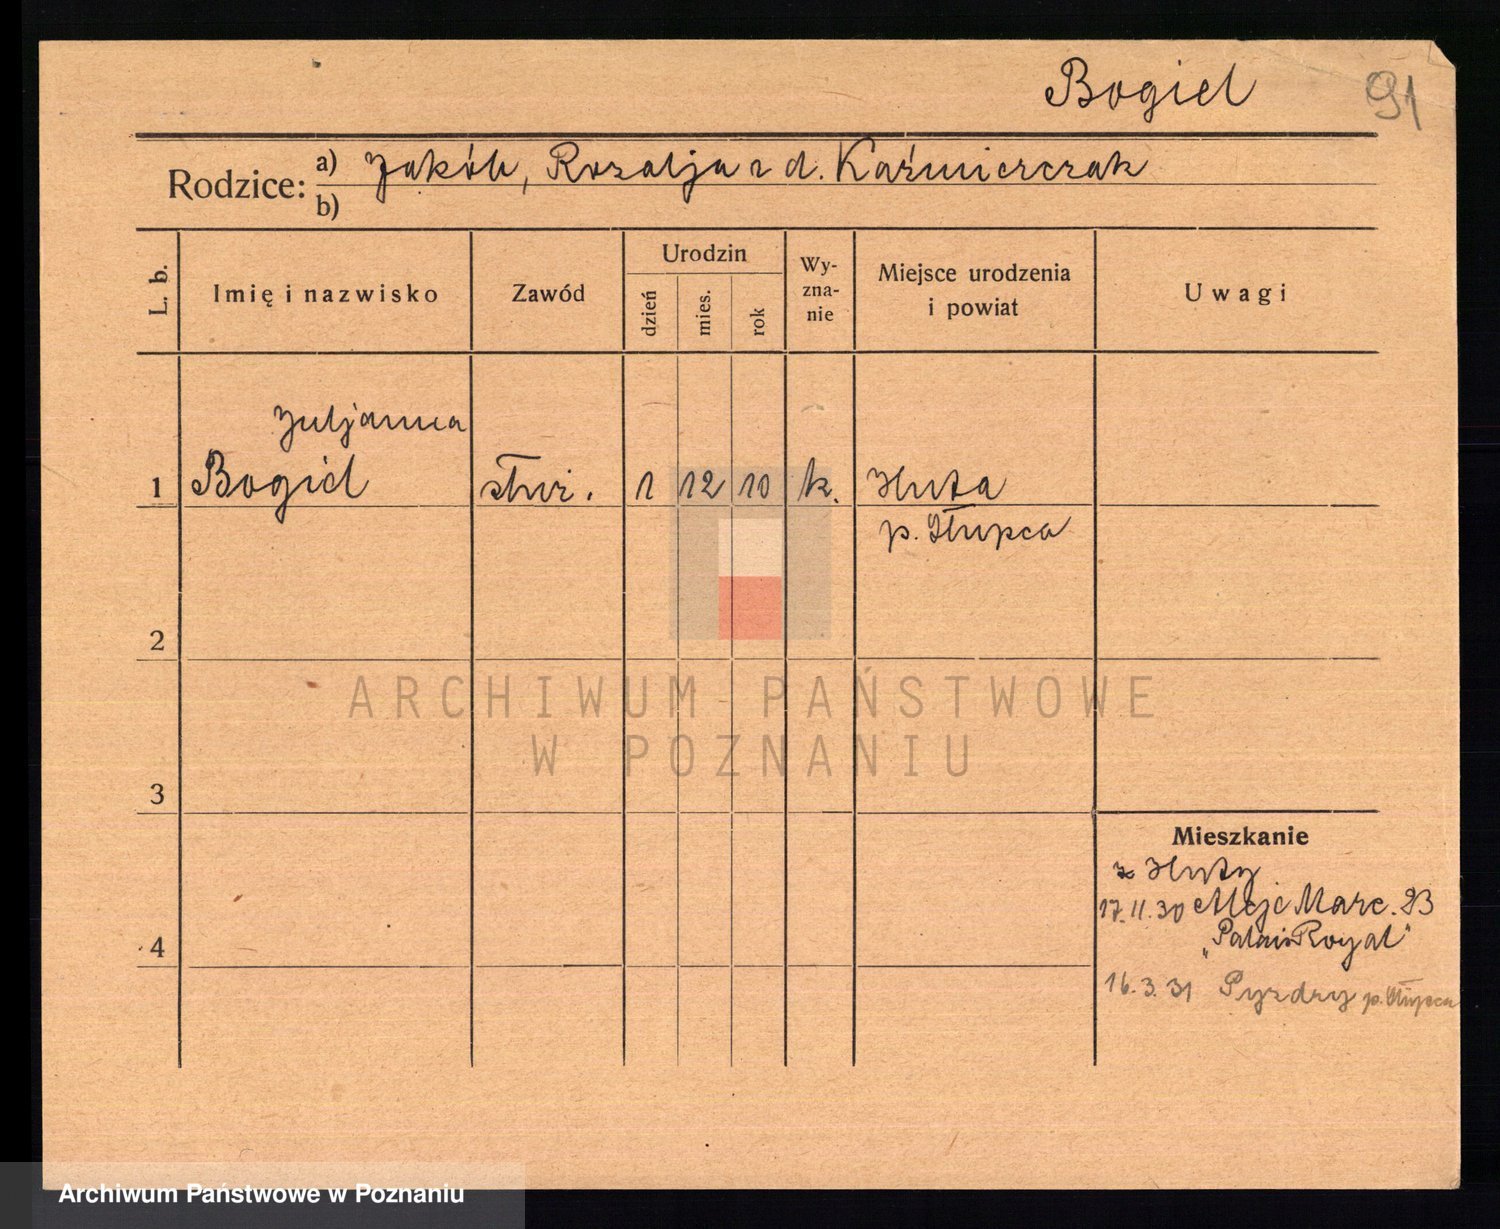 Bogiel 91
Rodzice: a) Jakób, Rozalja z d. Kaźmierczak
b)
L. b. Imię i nazwisko Zawód Urodzin dzień mies. rok Wy-zna-nie Miejsce urodzenia i powiat Uwagi
Juljanna
1 Bogiel służ. 1 12 10 k. Huta
p. Słupca
2
ARCHIWUM PAŃSTWOWE
W POZNANIU
3
Mieszkanie
z Huty
17.11.30 Aleje Marc. 23
4 „Palais Royal"
16.3.31 Pyzdry p. Słupca
Archiwum Państwowe w Poznaniu